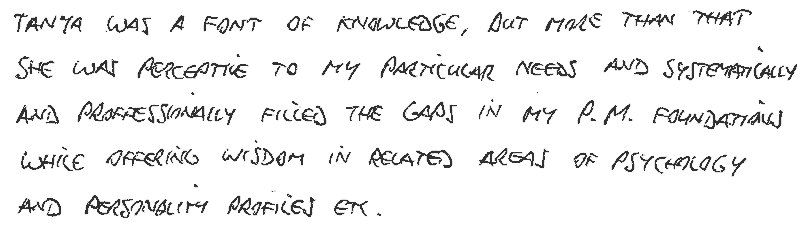 TANYA WAS A FONT OF KNOWLEDGE, BUT MORE THAN THAT
SHE WAS PERCEPTIVE TO MY PARTICULAR NEEDS AND SYSTEMATICALLY
AND PROFFESSIONALLY FILLED THE GAPS IN MY P.M. FOUNDATIONS
WHILE OFFERING WISDOM IN RELATED AREAS OF PSYCHOLOGY
AND PERSONALITY PROFILES ETC.